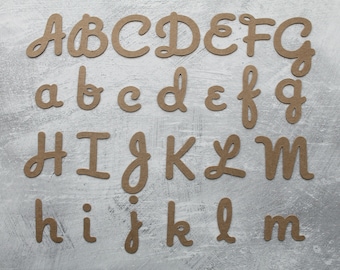 ABCDEFG
abcdefg
HIJKLM
hijklm